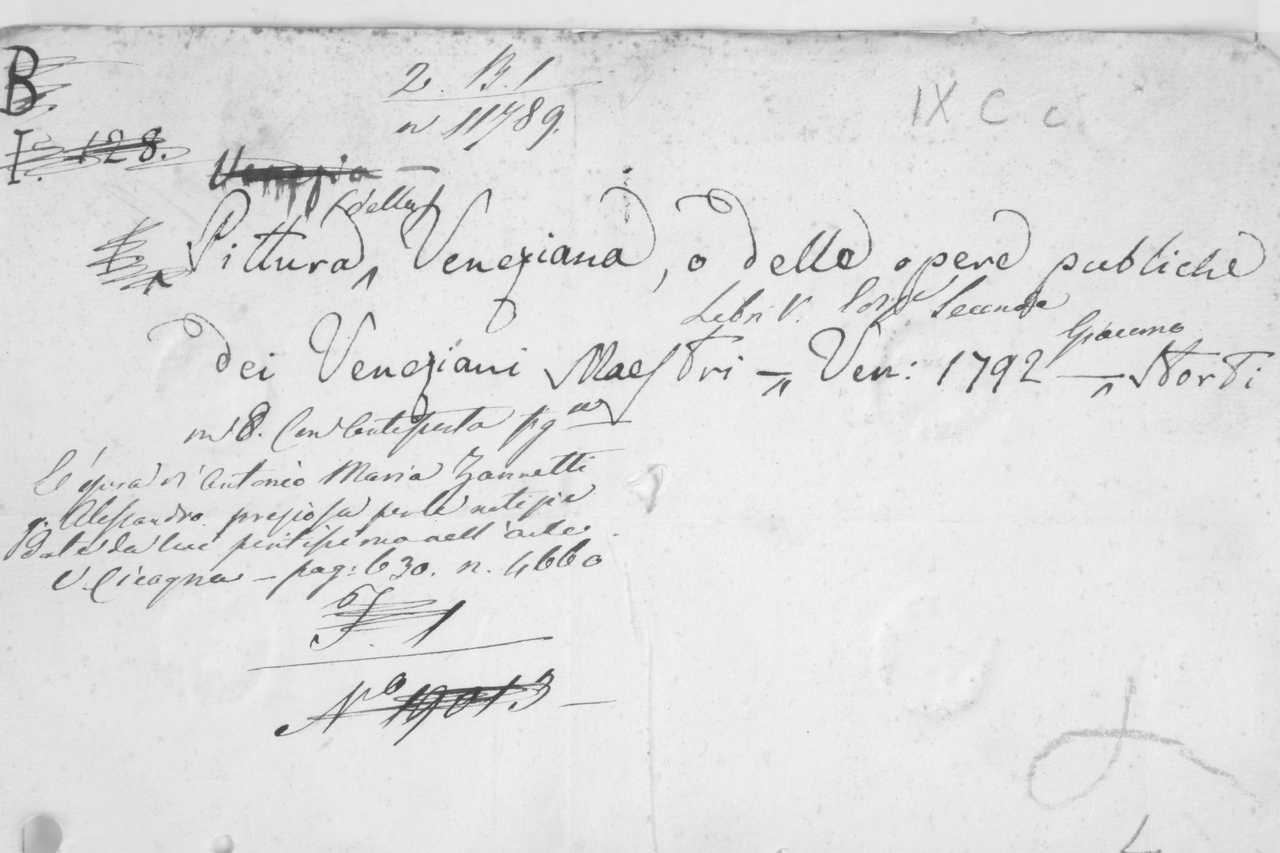 B.
2. B. 1
n 11789.
IX C c
I. 128.
Venezia
(della)
Pittura Veneziana, o delle opere publiche
Libri V. Seconda
Giacomo
dei Veneziani Maestri – Ven: 1792 – Storti
in 8. Con antiporta fig
È opera di Antonio Maria Zannetti
q. Alessandro preziosa per le notizie
date da lui peritissimo nell'arte.
V. Cicogna – pag: 630. n. 4660
J. 1
No 19013 –